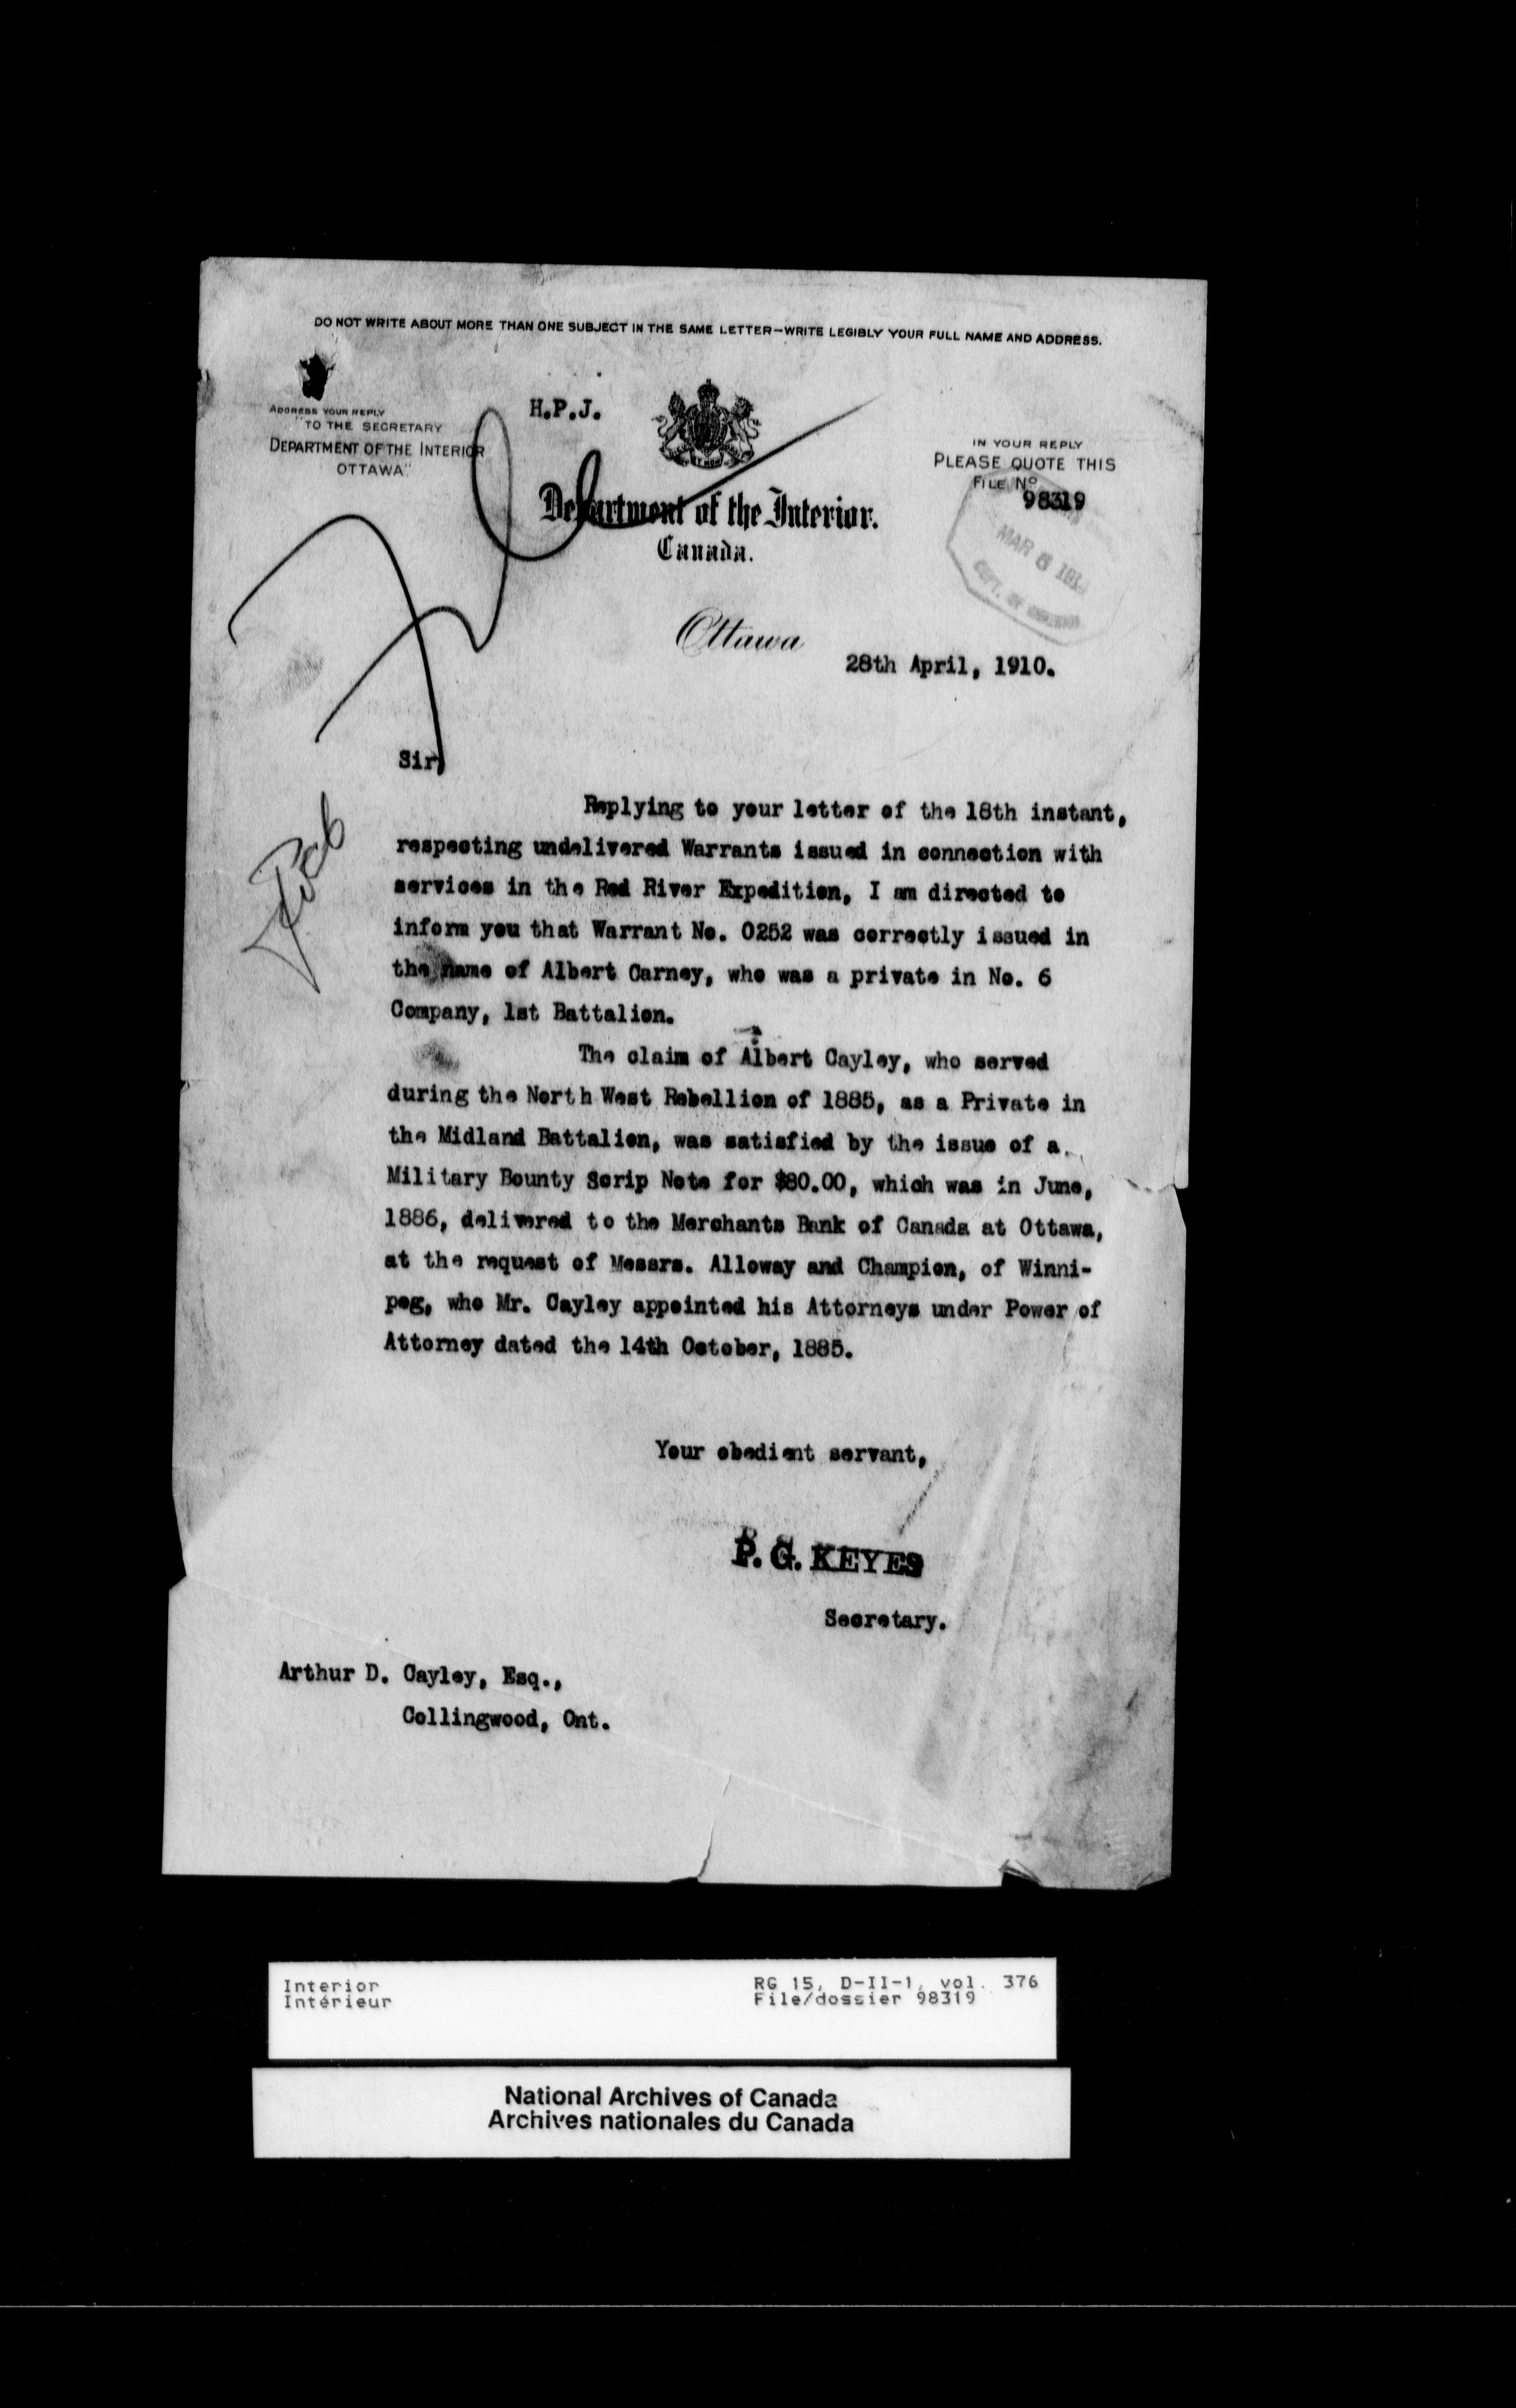 DO NOT WRITE ABOUT MORE THAN ONE SUBJECT IN THE SAME LETTER—WRITE LEGIBLY YOUR FULL NAME AND ADDRESS.
ADDRESS YOUR REPLY
"TO THE SECRETARY
DEPARTMENT OF THE INTERIOR
OTTAWA"
H.P.J.
IN YOUR REPLY
PLEASE QUOTE THIS
FILE No
98319
Department of the Interior.
Canada.
MAR 6 191
DEPT. OF
Ottawa
28th April, 1910.
Sir,
Replying to your letter of the 18th instant,
respecting undelivered Warrants issued in connection with
services in the Red River Expedition, I am directed to
inform you that Warrant No. 0252 was correctly issued in
the name of Albert Carney, who was a private in No. 6
Company, 1st Battalion.
The claim of Albert Cayley, who served
during the North West Rebellion of 1885, as a Private in
the Midland Battalion, was satisfied by the issue of a
Military Bounty Scrip Note for $80.00, which was in June,
1886, delivered to the Merchants Bank of Canada at Ottawa,
at the request of Messrs. Alloway and Champion, of Winni-
peg, who Mr. Cayley appointed his Attorneys under Power of
Attorney dated the 14th October, 1885.
Your obedient servant,
P. G. KEYES
Secretary.
Arthur D. Cayley, Esq.,
Collingwood, Ont.
Interior
Intérieur
RG 15, D-II-1, vol. 376
File/dossier 98319
National Archives of Canada
Archives nationales du Canada